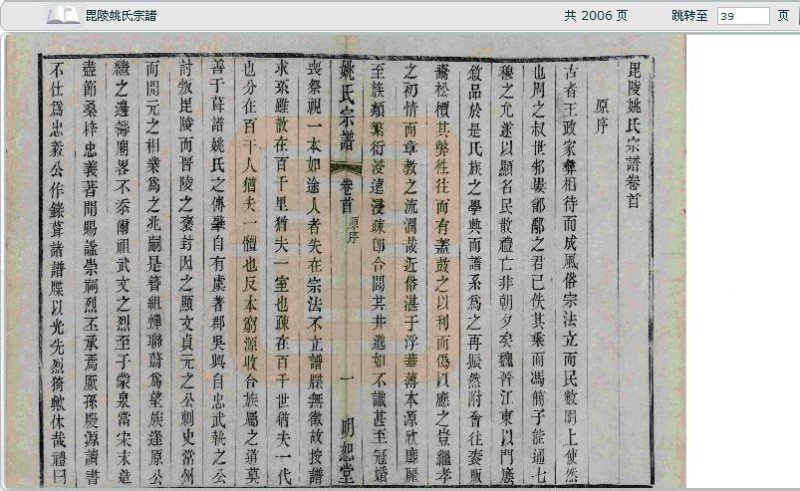 毘陵姚氏宗譜
共 2006 页
跳转至 39 页
毘陵姚氏宗譜卷首
原序
古者王政家彝相待而成風俗宗法立而民數明上使然
也周之叔世邾婁郜鄅之君已佚其乘而馮簡子能通七
穆之允遂以顯名民散禮亡非朝夕矣魏晉江東以門廕
敘品於是氏族之學興而譜系爲之再振然附會往袠販
松檟其弊往往而有蓋鼓之以利而僞以應之豈繼孝
之初情而章教之流潤哉近俗湛于浮華薄本源欣靡麗
至族類繁衍浸遠浸疎卽合閈共井邈如不識甚至冠婚
姚氏宗譜 卷首 原序 一 明恕堂
喪祭視一本如途人者失在宗法不立譜牒無徵故按譜
求系雖散在百千里猶夫一室也疎在百千世猶夫一代
也分在百千人猶夫一體也反本窮源收合族屬之道莫
善于葺譜姚氏之傳肇自有虞著郡吳興自忠武執之公
討叛毘陵而晉陵之褒封因之顯文貞元之公刺史常州
而開元之相業爲之兆嗣是簪組蟬聯蔚爲望族逢原公
繼之邊籌廟畧不忝爾祖武文之烈至子蒙泉當宋末造
盡節桑梓忠義著聞賜諡崇祠烈丕承焉厥孫慶源讀書
不仕爲忠毅公作錄葺諸譜牒以光先烈猗歟休哉禮曰